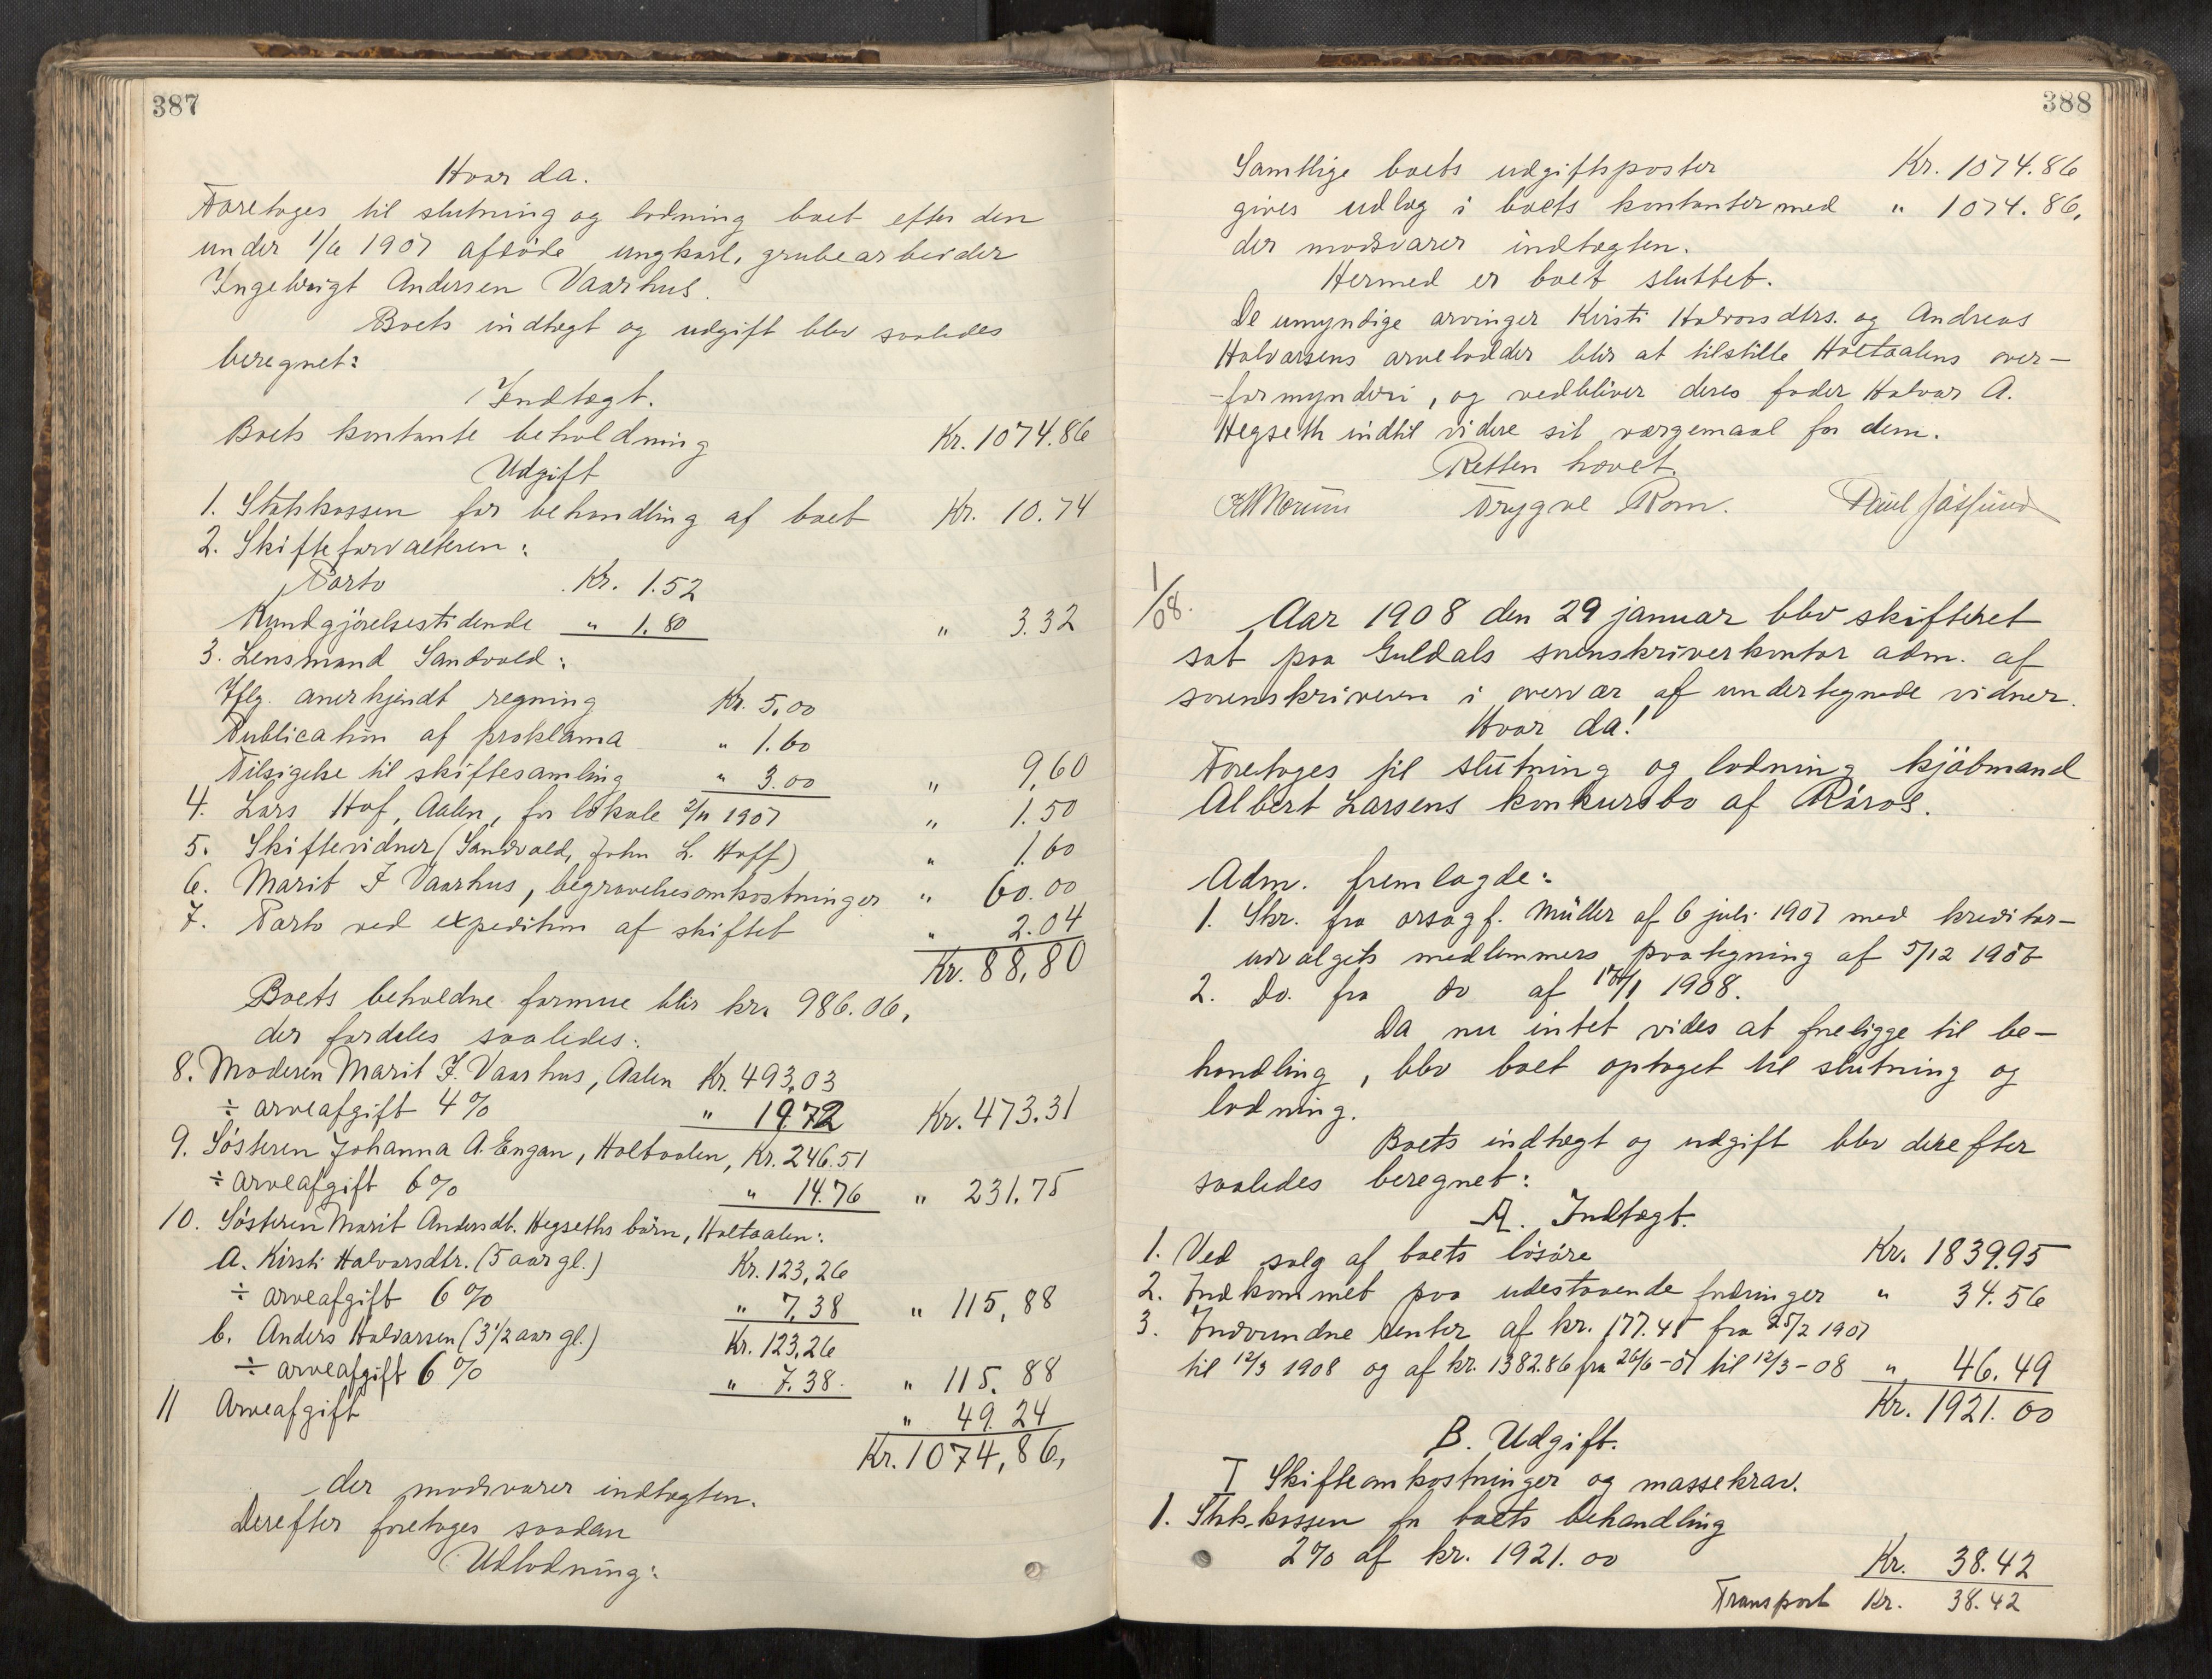 387
Hvor da.
Foretoges til slutning og lodning boet efter den
under 1/6 1907 afdøde ungkarl, grubearbeider
Ingebrigt Andersen Vaarhus.
Boets indtægt og udgift blev saaledes
beregnet:
Indtægt.
Boets kontante beholdning Kr. 1074.86
Udgift
1. Statskassen for behandling af boet Kr. 10.74
2. Skifteforvalteren:
Porto Kr. 1.52
Kundgjörelsestidende " 1.80 " 3.32
3. Lensmand Sandvold:
Iflg. anerkjendt regning Kr. 5,00
Publication af proklama " 1.60
Tilsigelse til skiftesamling " 3.00 " 9,60
4. Lars Hof, Aalen, for lokale 2/11 1907 " 1.50
5. Skiftevidner (Sandvold, John L. Hoff) " 1.60
6. Marit J Vaarhus, begravelsesomkostninger " 60.00
7. Porto ved expedition af skiftet " 2.04
Kr. 88,80
Boets beholdne formue blir kr. 986.06,
der fordeles saaledes:
8. Moderen Marit J. Vaarhus, Aalen Kr. 493,03
÷ arveafgift 4% " 19.72 Kr. 473.31
9. Søsteren Johanna A. Engan, Holtaalen, Kr. 246.51
÷ arveafgift 6% " 14.76 " 231.75
10. Søsteren Marit Andersdt. Hegseths børn, Holtaalen:
a. Kirsti Halvorsdtr. (5 aar gl.) Kr. 123,26
÷ arveafgift 6% " 7,38 " 115,88
b. Anders Halvorsen (3 1/2 aar gl.) Kr. 123,26
÷ arveafgift 6% " 7.38. " 115.88
11 Arveafgift " 49.24
Kr. 1074,86,
der modsvarer indtægten.
Derefter foretoges saadan
Udlodning:
388
Samtlige boets udgiftsposter Kr. 1074.86
gives udlæg i boets kontanter med " 1074.86,
der modsvarer indtægten.
Hermed er boet sluttet.
De umyndige arvinger Kirsti Halvorsdtrs. og Andreas
Halvorsens arvelodder blir at tilstille Holtaalens over-
-formynderi, og vedbliver deres fader Halvor A.
Hegseth indtil videre sit værgemaal for dem.
Retten hævet.
Trygve Rom. Paul
1/08.
Aar 1908 den 29 januar blev skifteret
sat paa Guldals sorenskriverkontor adm. af
sorenskriveren i overvær af undertegnede vidner.
Hvor da!
Foretoges til slutning og lodning kjøbmand
Albert Larsens konkursbo af Røros.
Adm. fremlagde:
1. Skr. fra orsagf. Müller af 6 juli 1907 med kreditor-
udvalgets medlemmers paategning af 5/12 1907
2. Do. fra do af 17/1 1908.
Da nu intet vides at foreligge til be-
handling, blev boet optaget til slutning og
lodning.
Boets indtægt og udgift blev derefter
saaledes beregnet:
A. Indtægt.
1. Ved salg af boets løsøre Kr. 1839.95
2. Indkommet paa udestaaende fordringer " 34.56
3. Indvundne renter af kr. 177.45 fra 25/2 1907
til 12/3 1908 og af kr. 1382.86 fra 26/6-07 til 12/3-08 " 46.49
Kr. 1921.00
B. Udgift.
I Skifteomkostninger og massekrav.
1. Statskassen for boets behandling
2% af kr. 1921.00 Kr. 38.42
Transport Kr. 38.42